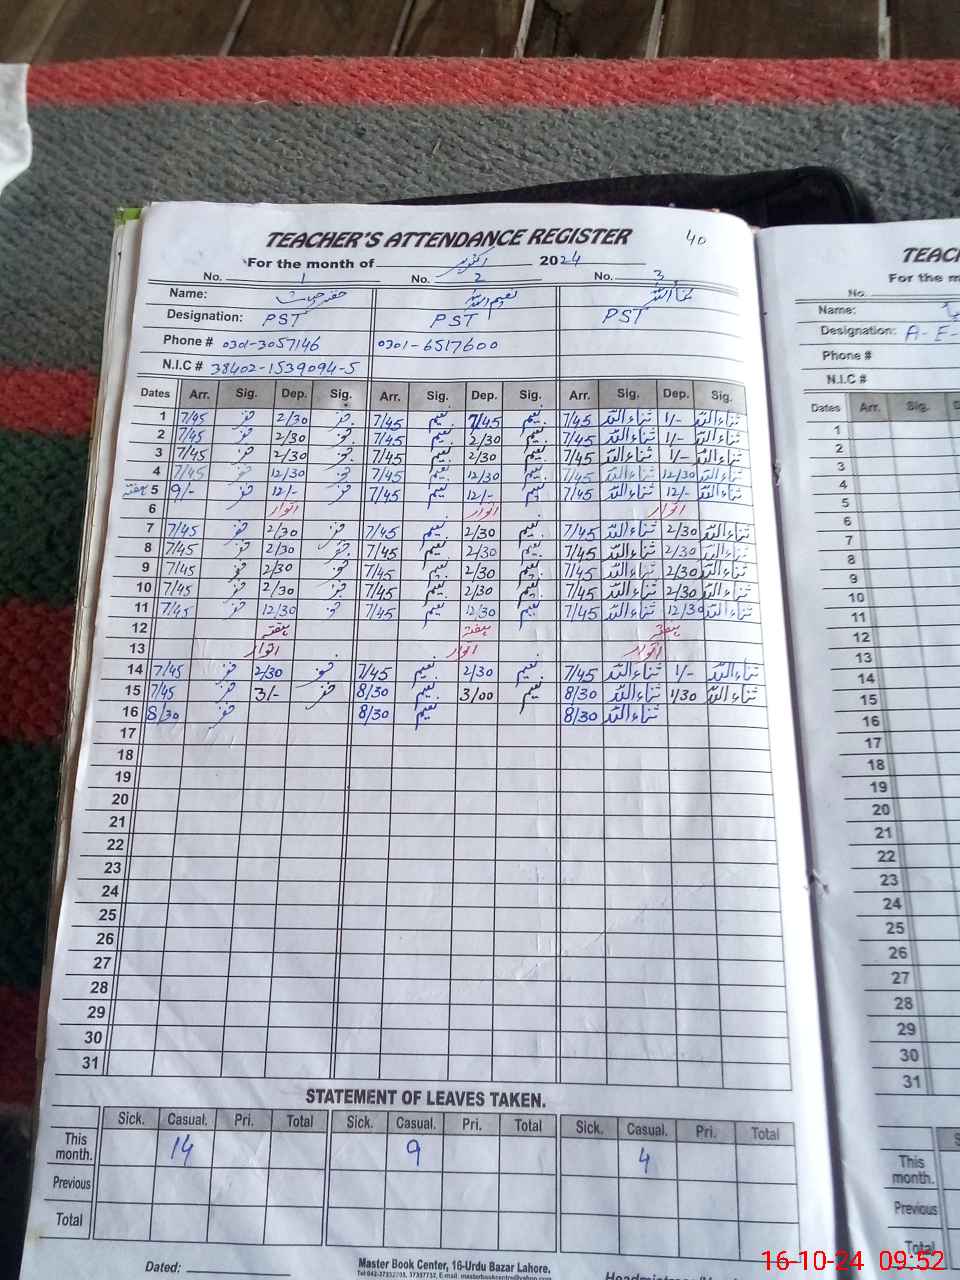 TEACHER'S ATTENDANCE REGISTER 40
For the month of اکتوبر 2024
No. 1 No. 2 No. 3
Name: نعیم اللہ ثناء اللہ
Designation: PST PST PST
Phone # 0301-3057146 0301-6517600
N.I.C # 38402-1539094-5
Dates Arr. Sig. Dep. Sig. Arr. Sig. Dep. Sig. Arr. Sig. Dep. Sig.
1 7/45 2/30 7/45 نعیم 7/45 نعیم 7/45 ثناء اللہ 1/- ثناء اللہ
2 7/45 2/30 7/45 نعیم 2/30 نعیم 7/45 ثناء اللہ 1/- ثناء اللہ
3 7/45 2/30 7/45 نعیم 2/30 نعیم 7/45 ثناء اللہ 1/- ثناء اللہ
4 7/45 12/30 7/45 نعیم 12/30 نعیم 7/45 ثناء اللہ 12/30 ثناء اللہ
ہفتہ 5 9/- 12/- 7/45 نعیم 12/- نعیم 7/45 ثناء اللہ 12/- ثناء اللہ
6 اتوار اتوار اتوار
7 7/45 2/30 7/45 نعیم 2/30 نعیم 7/45 ثناء اللہ 2/30 ثناء اللہ
8 7/45 2/30 7/45 نعیم 2/30 نعیم 7/45 ثناء اللہ 2/30 ثناء اللہ
9 7/45 2/30 7/45 نعیم 2/30 نعیم 7/45 ثناء اللہ 2/30 ثناء اللہ
10 7/45 2/30 7/45 نعیم 2/30 نعیم 7/45 ثناء اللہ 2/30 ثناء اللہ
11 7/45 12/30 7/45 نعیم 12/30 نعیم 7/45 ثناء اللہ 12/30 ثناء اللہ
12 ہفتہ ہفتہ ہفتہ
13 اتوار اتوار اتوار
14 7/45 2/30 7/45 نعیم 2/30 نعیم 7/45 ثناء اللہ 1/- ثناء اللہ
15 7/45 3/- 8/30 نعیم 3/00 نعیم 8/30 ثناء اللہ 1/30 ثناء اللہ
16 8/30 8/30 نعیم 8/30 ثناء اللہ
17
18
19
20
21
22
23
24
25
26
27
28
29
30
31
STATEMENT OF LEAVES TAKEN.
Sick. Casual. Pri. Total Sick. Casual. Pri. Total Sick. Casual. Pri. Total
This month. 14 9 4
Previous
Total
Dated:
Master Book Center, 16-Urdu Bazar Lahore,
TEAC
For the m
No.
Name:
Designation: A-E-
Phone #
N.I.C #
Dates Arr. Sig.
1
2
3
4
5
6
7
8
9
10
11
12
13
14
15
16
17
18
19
20
21
22
23
24
25
26
27
28
29
30
31
This month.
Previous
Total
16-10-24 09:52